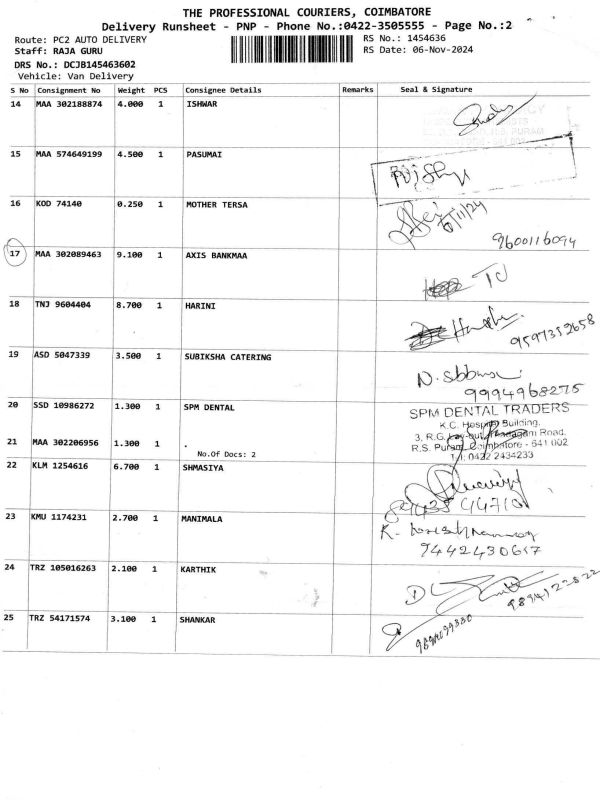 THE PROFESSIONAL COURIERS, COIMBATORE
Delivery Runsheet - PNP - Phone No.:0422-3505555 - Page No.:2
Route: PC2 AUTO DELIVERY
RS No.: 1454636
Staff: RAJA GURU
RS Date: 06-Nov-2024
DRS No.: DCJB145463602
Vehicle: Van Delivery
S No Consignment No Weight PCS Consignee Details Remarks Seal & Signature
14 MAA 302188874 4.000 1 ISHWAR
15 MAA 574649199 4.500 1 PASUMAI
16 KOD 74140 0.250 1 MOTHER TERSA
9600116094
17 MAA 302089463 9.100 1 AXIS BANKMAA
18 TNJ 9604404 8.700 1 HARINI
9597352658
19 ASD 5047339 3.500 1 SUBIKSHA CATERING
9994968275
20 SSD 10986272 1.300 1 SPM DENTAL
SPM DENTAL TRADERS
K.C. Hospital Building,
3, R.G. Lay-out, Road,
R.S. Puram, Coimbatore - 641 002
Tel: 0422 2434233
21 MAA 302206956 1.300 1 .
No.Of Docs: 2
22 KLM 1254616 6.700 1 SHMASIYA
23 KMU 1174231 2.700 1 MANIMALA
9442430617
24 TRZ 105016263 2.100 1 KARTHIK
9894122822
25 TRZ 54171574 3.100 1 SHANKAR